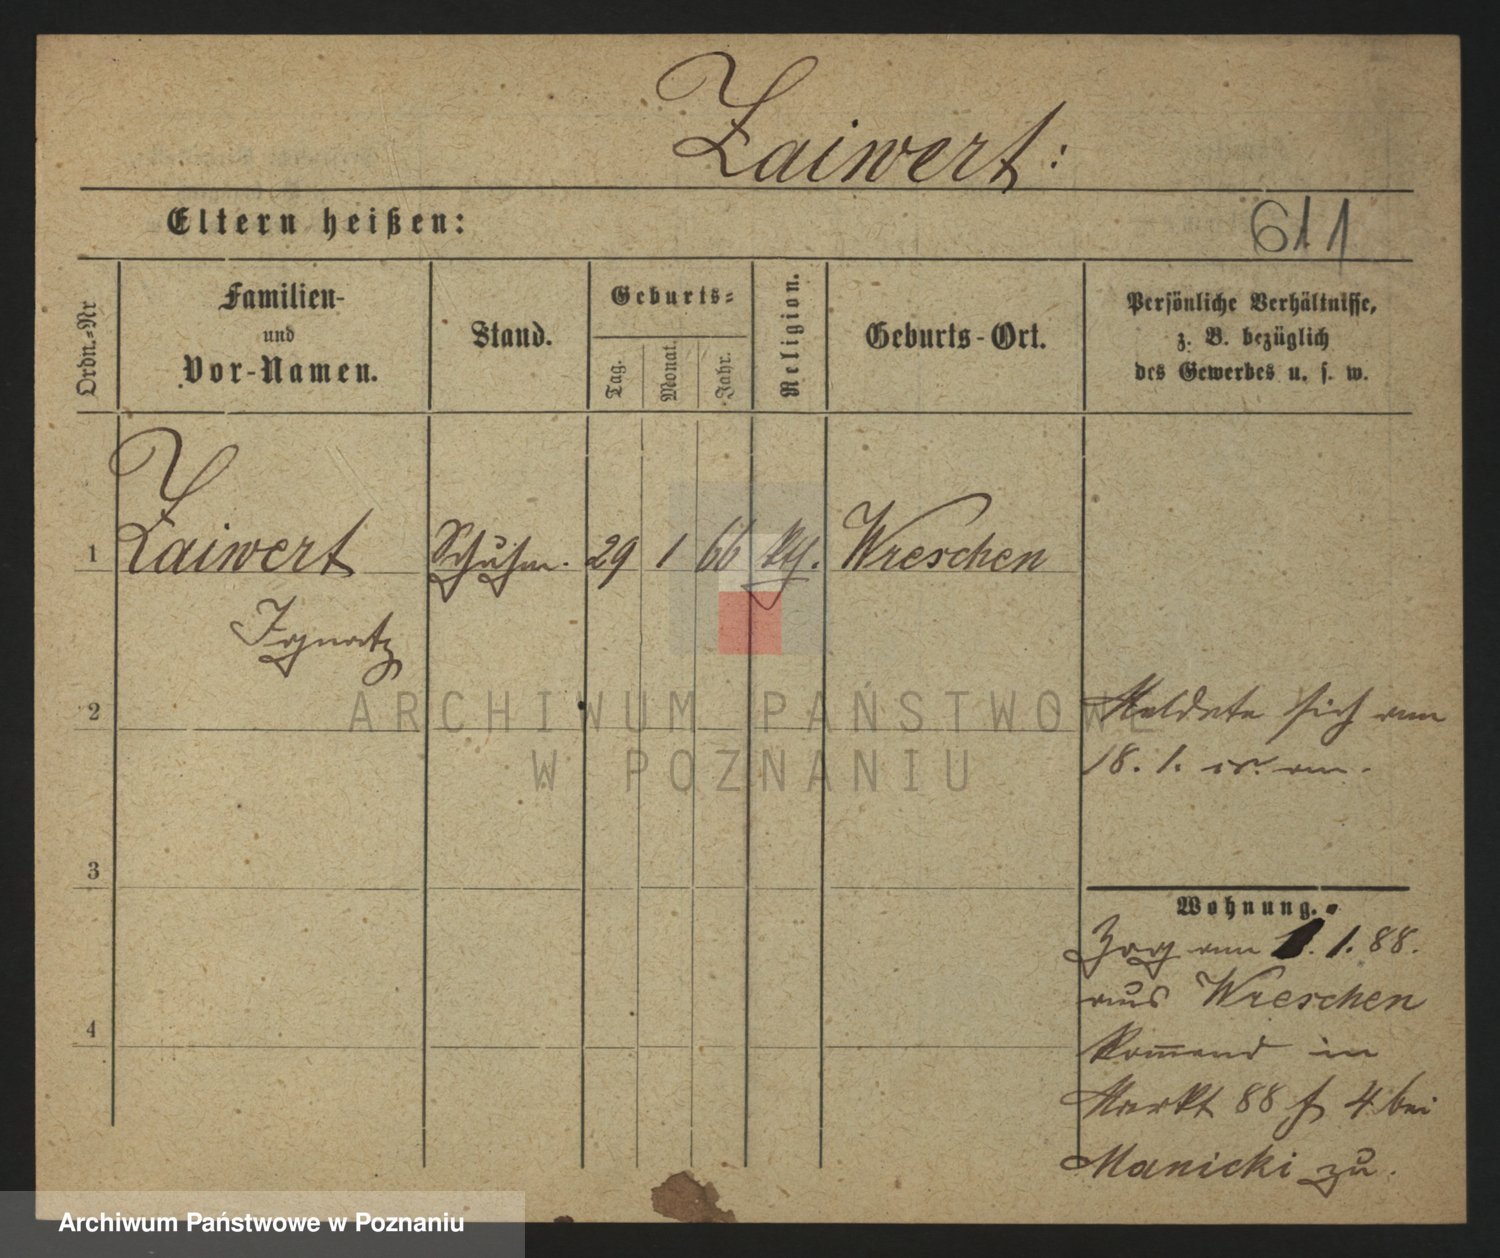 Zaiwert:
Eltern heißen:
611
Ordn.-Nr
Familien-
und
Vor-Namen.
Stand.
Geburts-
Tag.
Monat.
Jahr.
Religion.
Geburts-Ort.
Persönliche Verhältnisse,
z. B. bezüglich
des Gewerbes u. s. w.
1 Zaiwert Schuhm. 29 1 66 Wreschen
Ignatz
2
Meldete sich am
18. 1. an.
ARCHIWUM PAŃSTWOWE
W POZNANIU
3
Wohnung.
Zog am 1. 1. 88.
aus Wreschen
4
kommend in
Markt 88 4 bei
Manicki zu.
Archiwum Państwowe w Poznaniu